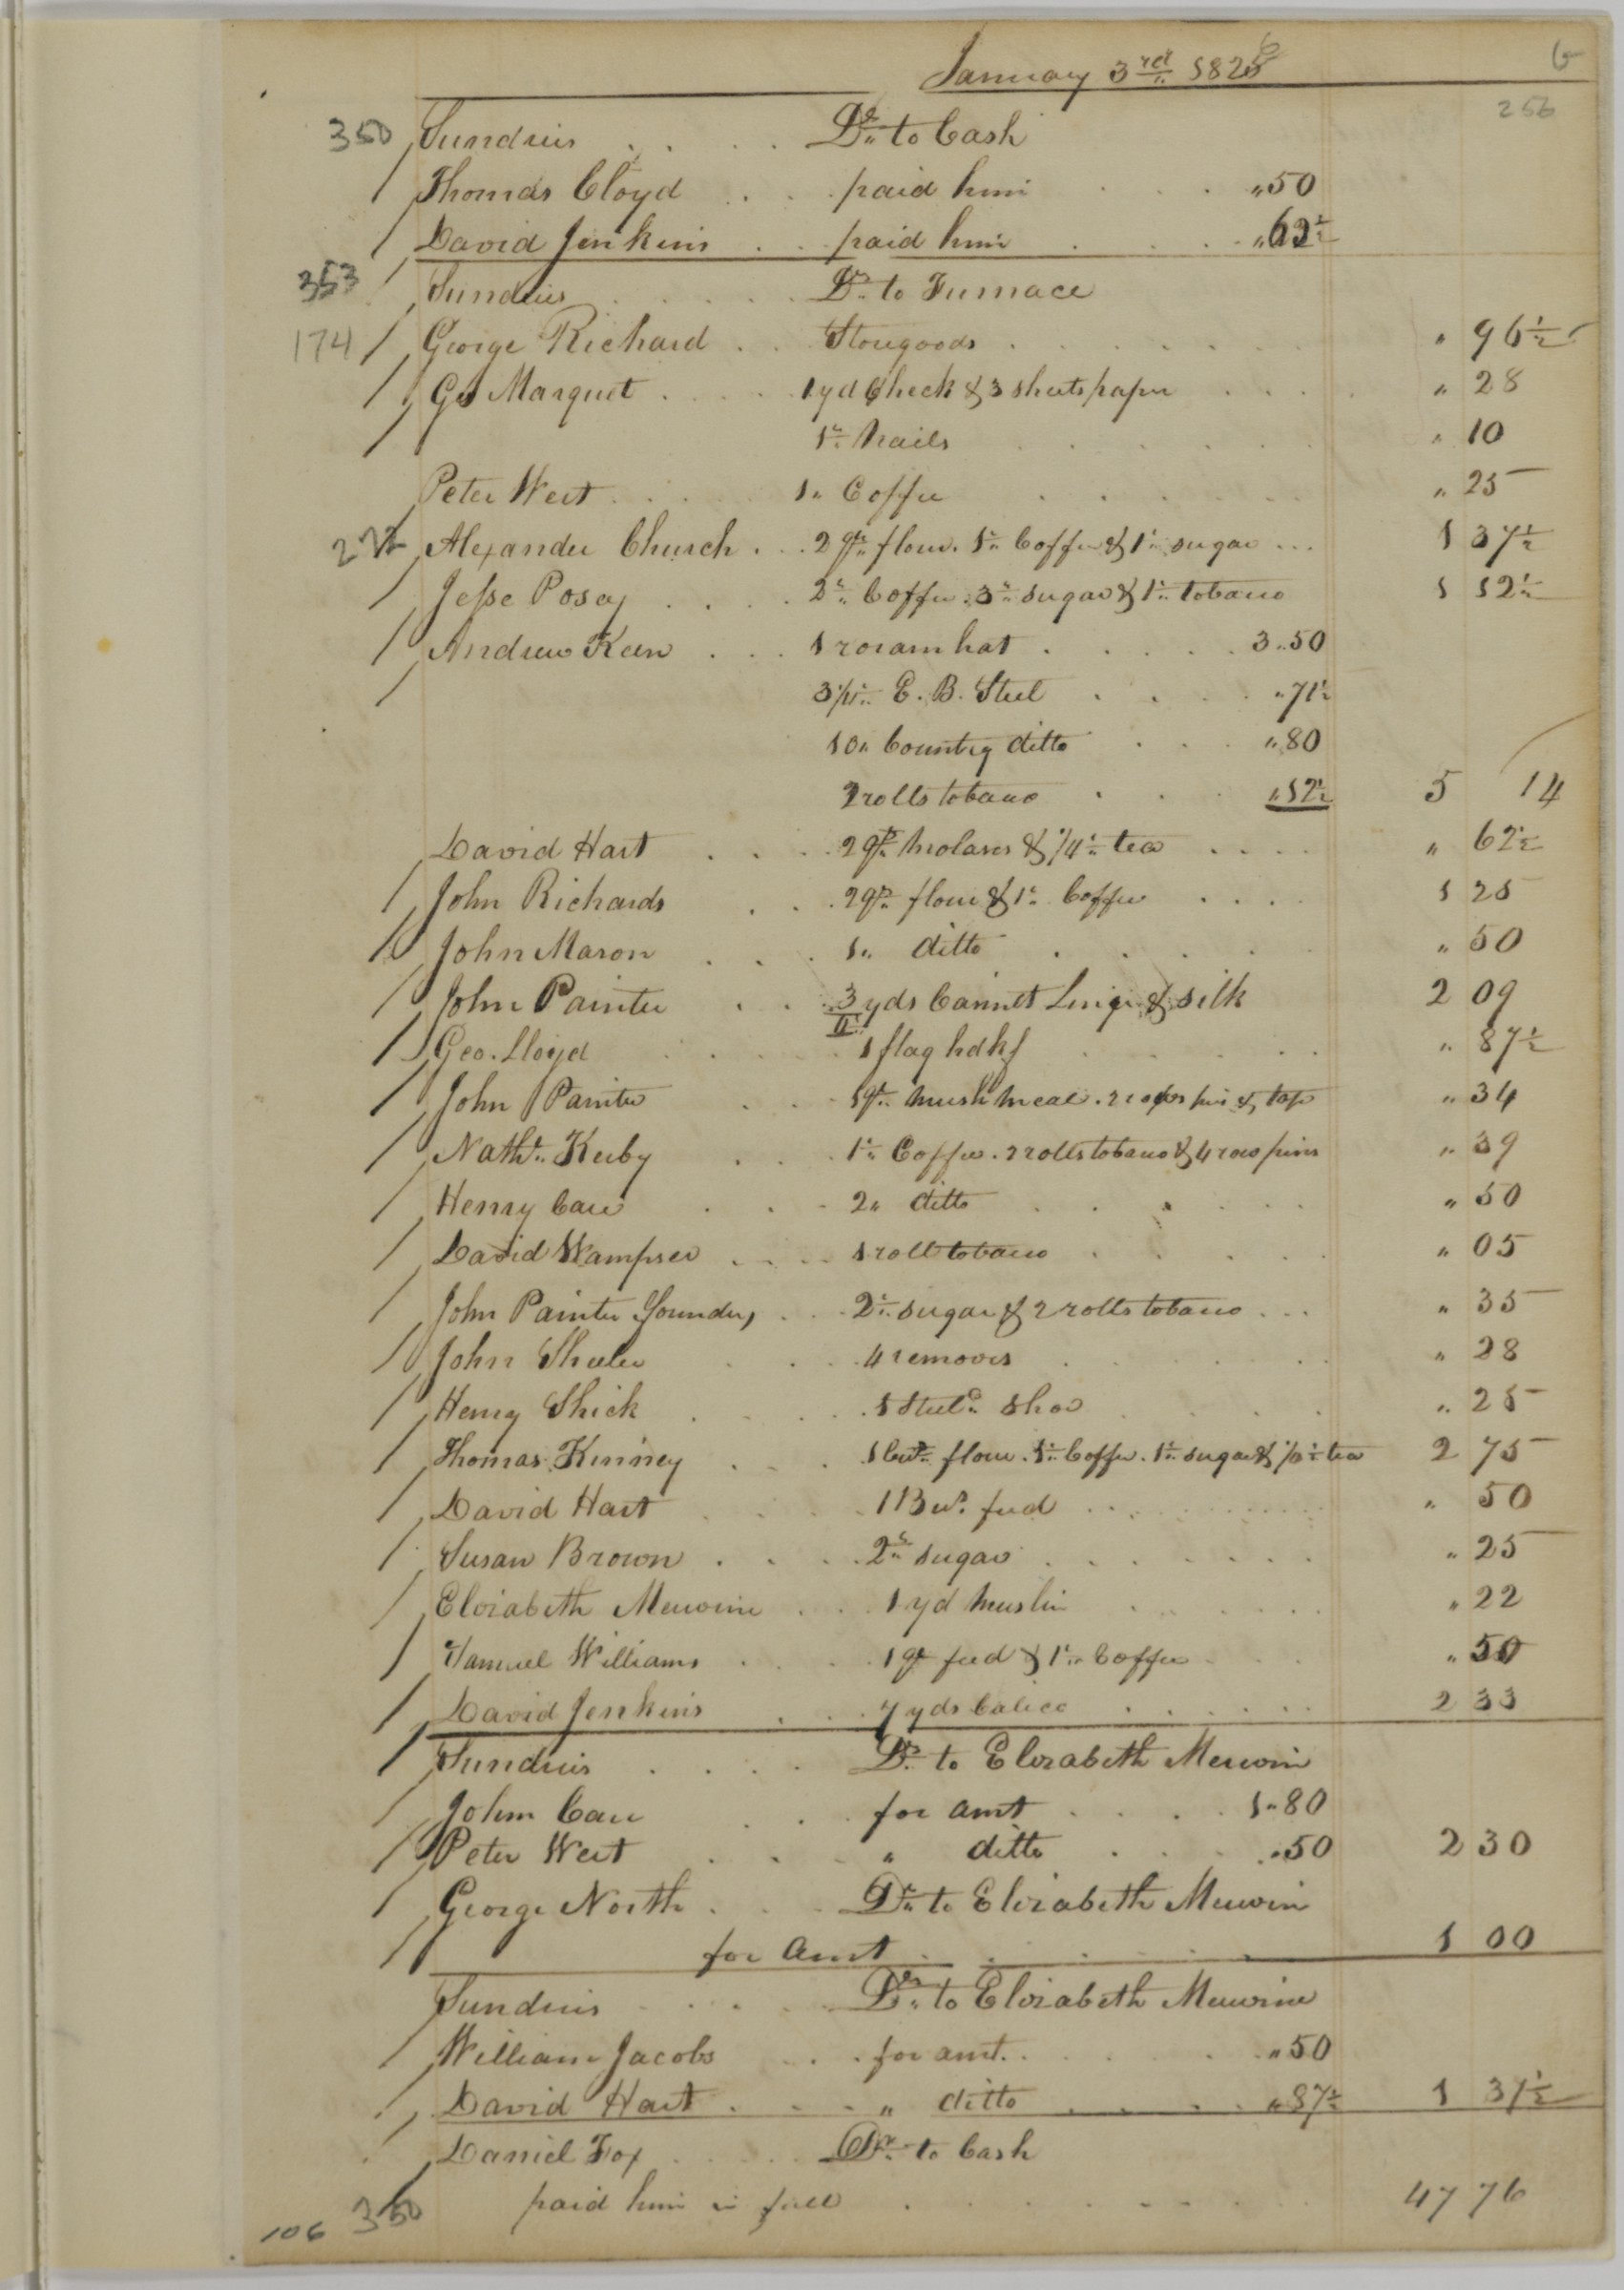 January 3rd 1826 6
256
350 Sundries Dr. to Cash
Thomas Cloyd paid him " 50
David Jenkins paid him " 62½
353 Sundries Dr. to Furnace
174 George Richard Storegoods " 96½
Geo Marquet 1 yd Check & 3 sheets paper " 28
1 lb nails " 10
Peter West 1 " Coffee " 25
272 Alexander Church 2 qr. flour. 1 lb Coffee & 1 lb sugar 1 37½
Jesse Posey 2 lb Coffee. 3 lb sugar & 1 lb tobacco 1 12½
Andrew Keen 1 roram hat 3 " 50
E. B. Steel " 71½
10 " Country ditto " 80
2 rolls tobacco " 12½ 5 14
David Hart 2 qts molases & ¼ lb tea " 62½
John Richards 2 qr. flour & 1 lb Coffee 1 25
John Mason 1 " ditto " 50
John Painter 3 yds Linge & silk 2 09
Geo. Lloyd 1 flag hdkf " 87½
John Painter 1 qr. mush meal. 2 rows pins & tape " 34
Nathl. Kerby 1 lb Coffee. 2 rolls tobacco & 4 row pins " 39
Henry Carr 2 " ditto " 50
David Wampser 1 roll tobacco " 05
John Painter Younder, 2 lb sugar & 2 rolls tobacco " 35
John Sheeler 4 removes " 28
Henry Shick 1 steeld. shoe " 25
Thomas Kinney 1 Cwt. flour. 1 lb Coffee. 1 lb sugar & ⅛ lb tea 2 75
David Hart 1 Bus. feed " 50
Susan Brown 2 lb sugar " 25
Elizabeth Merwine 1 yd muslin " 22
Samuel Williams 1 qr feed & 1 lb Coffee " 50
David Jenkins 7 yds Calico 2 33
Sundries Dr. to Elizabeth Merwin
John Carr for amt 1 " 80
Peter West " ditto " 50 2 30
George North Dr. to Elizabeth Merwin
for amt 1 00
Sundries Dr. to Elizabeth Merwine
William Jacobs for amt. " 50
David Hart " ditto " 87½ 1 37½
Daniel Fox Dr. to Cash
106 350 paid him in full 47 76